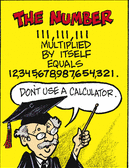 THE NUMBER
111,111,111
MULTIPLIED
BY ITSELF
EQUALS
12345678987654321.
DON'T USE A CALCULATOR.